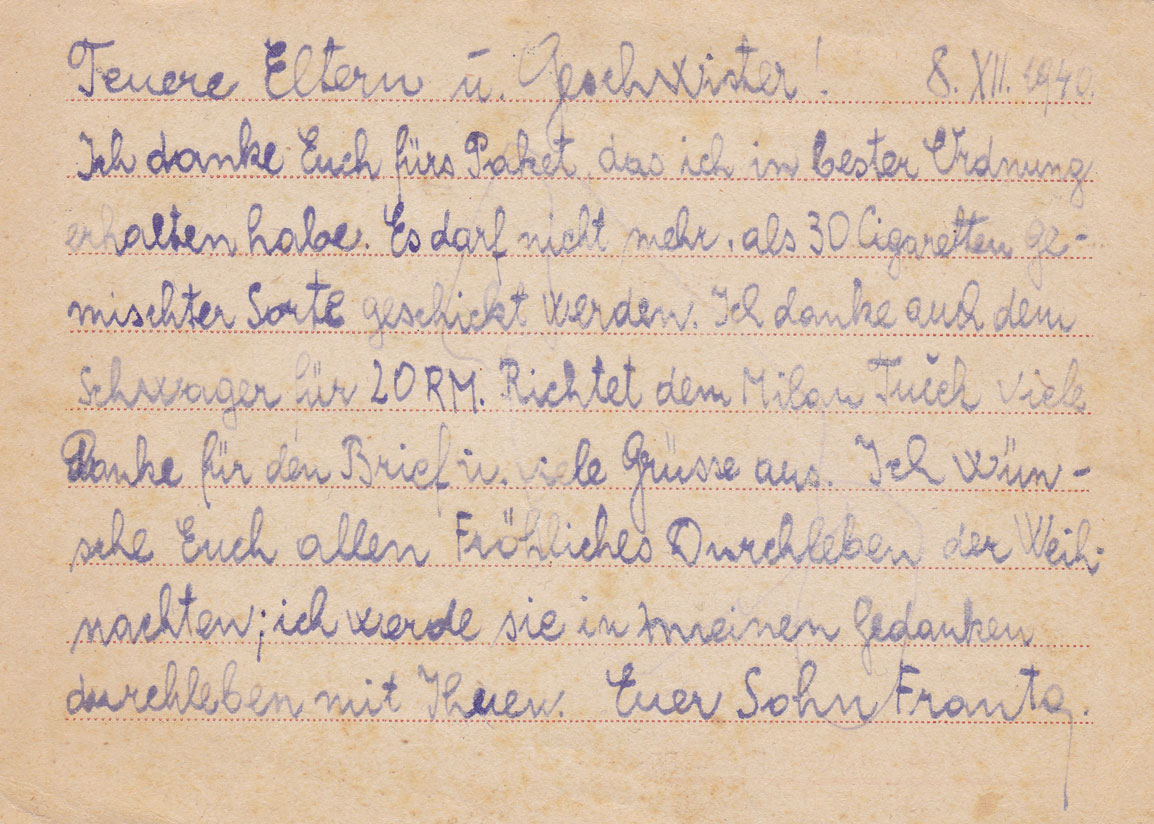 Teuere Eltern u. Geschwister! 8. XII. 1940.
Ich danke Euch fürs Paket, das ich in bester Ordnung
erhalten habe. Es darf nicht mehr, als 30 Cigaretten ge-
mischter Sorte geschickt werden. Ich danke auch dem
Schwager für 20 RM. Richtet dem Milan Tuček viele
Danke für den Brief u. viele Grüsse aus. Ich wün-
sche Euch allen Fröhliches Durchleben der Weih-
nachten; ich werde sie in meinen Gedanken
durchleben mit Ihnen. Euer Sohn Franta.